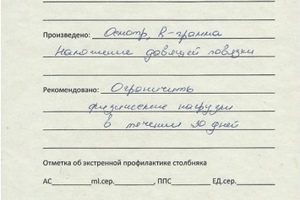 Произведено: Осмотр, R-грамма
Наложение давящей повязки
Рекомендовано: Ограничить
физические нагрузки
в течении 30 дней
Отметка об экстренной профилактике столбняка
АС________ml.сер.________, ППС________ЕД.сер.________